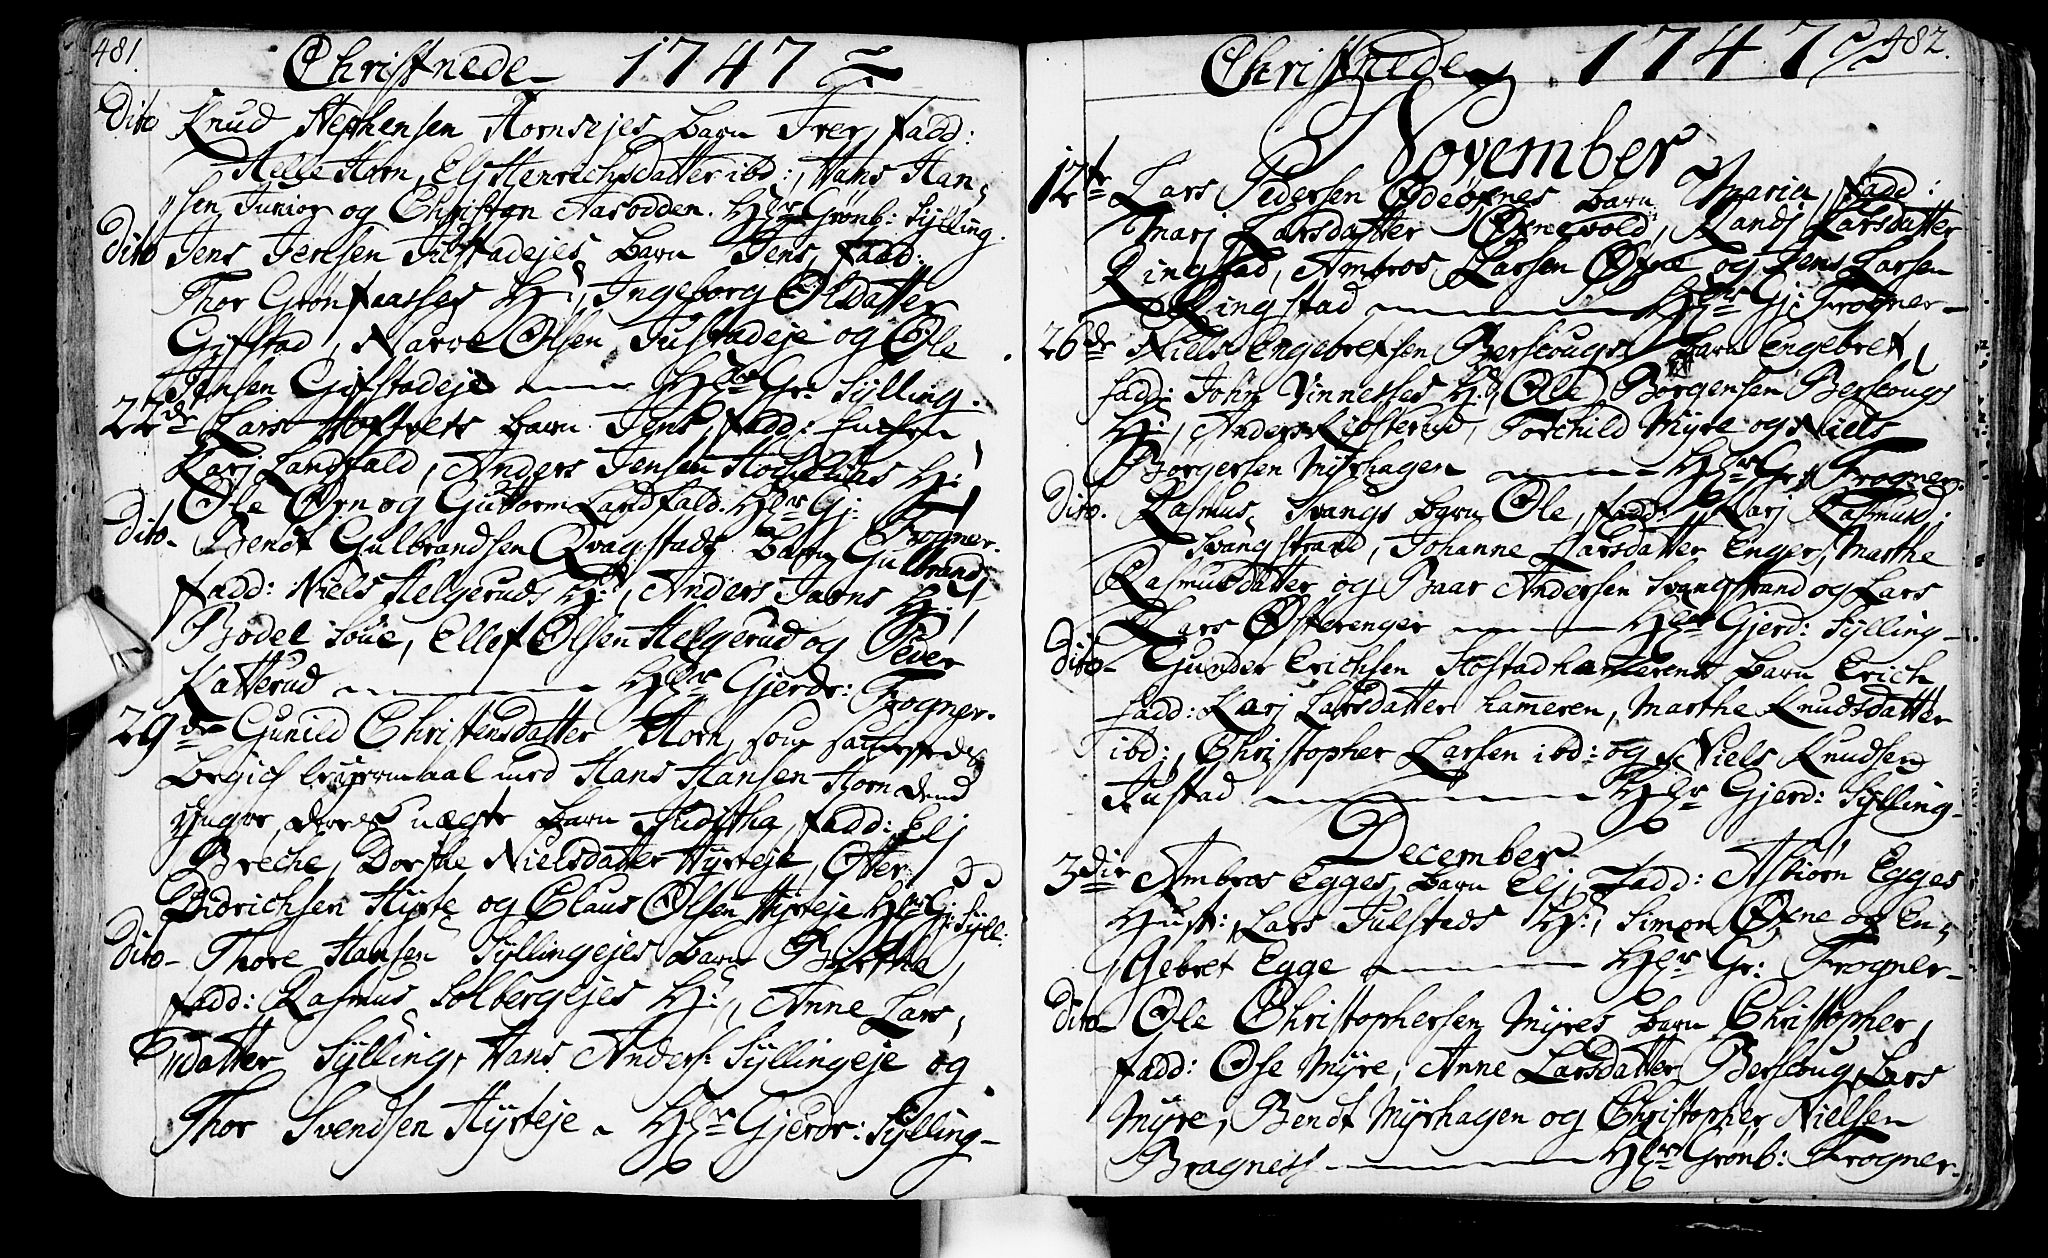 481.
Christnede 1747
Dito Knud Stephensen Hornsejes barn Iver, fadd:
Helle Horn, Elj Henrichsdatter ibd:, Hans Han-
sen Junior og Christen Aarodden. Hr Grønb: Sylling.
Dito Jens Jensen Julstadejes barn Jens, fadd:
Thor Grønfaasses H:, Ingeborg Olsdatter
Gifstad, Narve Olsen Justadeje og Ole
Jensen Gifstadeje Hr Gr: Sylling.
22de Lars Hoftvets barn Jens, fadd:
Karj Landfald, Anders Jensen H:
Ole Ørn og Guttorm Landfald: Hr Gj: Frogner.
Dito- Bendt Gulbrandsen Qvagstads barn Gulbrand,
fadd: Niels Helgeruds H:, Anders Jarns H:
Bodel Soue, Ellef Olsen Helgerud og Peder
Katterud Hr Gjerdr: Frogner.
29de Gunild Christensdatter Horn, som
begich med Hans Hansen Horn dend
yngre deres uægte barn Juditha, fadd: Elj
Breche, Dorthe Nielsdatter Hyrteje, Otter
Didrichsen Hyrte og Claus Olsen Hyrteje Hr Gj: Syll:
Dito- Thore Hansen Syllingejes barn Birthe,
fadd: Rasmus Solbergejes H:, Anne Lars-
datter Sylling, Hans Anders: Syllingeje og
Thor Svendsen Hyrteje Hr Gjerdr: Sylling-
482.
Christnede 1747
November
12te Lars Pedersen Ødeøxnes barn Maria, fadd:
Marj Larsdatter Øxnevold, Randj Larsdatter
Ringstad, Ambros Larsen Øxne og Jens Larsen
Ringstad Hr Gj: Frogner-
26de Niels Engebretsen Berscougs barn Engebret,
fadd: John Vinnesses H:, Ole Borgensen Berscougs
H:, Anders Kiøsterud, Torchild Myre og Niels
Børgersen Myrhagen Hr Gr: Frogner.
Dito. Rasmus Svangs barn Ole, fadd: Karj Rasmusd:
Svangstrand, Johanne Larsdatter Enger, Marthe
Rasmusdatter og Baar Andersen Svangstrand og Lars
Lars Østerenger Hr Gjerd: Sylling-
Dito- Gunder Erichsen Høstadhammerens barn Erich
fadd: Karj Larsdatter hameren, Marthe Knudsdatter
ibd:, Christopher Larsen ibd: og Niels Knudsen
Justad Hr Gjerd: Sylling-
December
3die Ambros Egges barn Elj, Fadd: Asbiørn Egges
Hust:, Lars Julstads H:, Simon Øxne og En-
gebret Egge Hr Gr: Frogner-
Dito- Ole Christophersen Myres barn Christopher,
fadd: Ose Myre, Anne Larsdatter Berscoug, Lars
Myre, Bendt Myrhagen og Christopher Nielsen
Bragness Hr Grønb: Frogner-